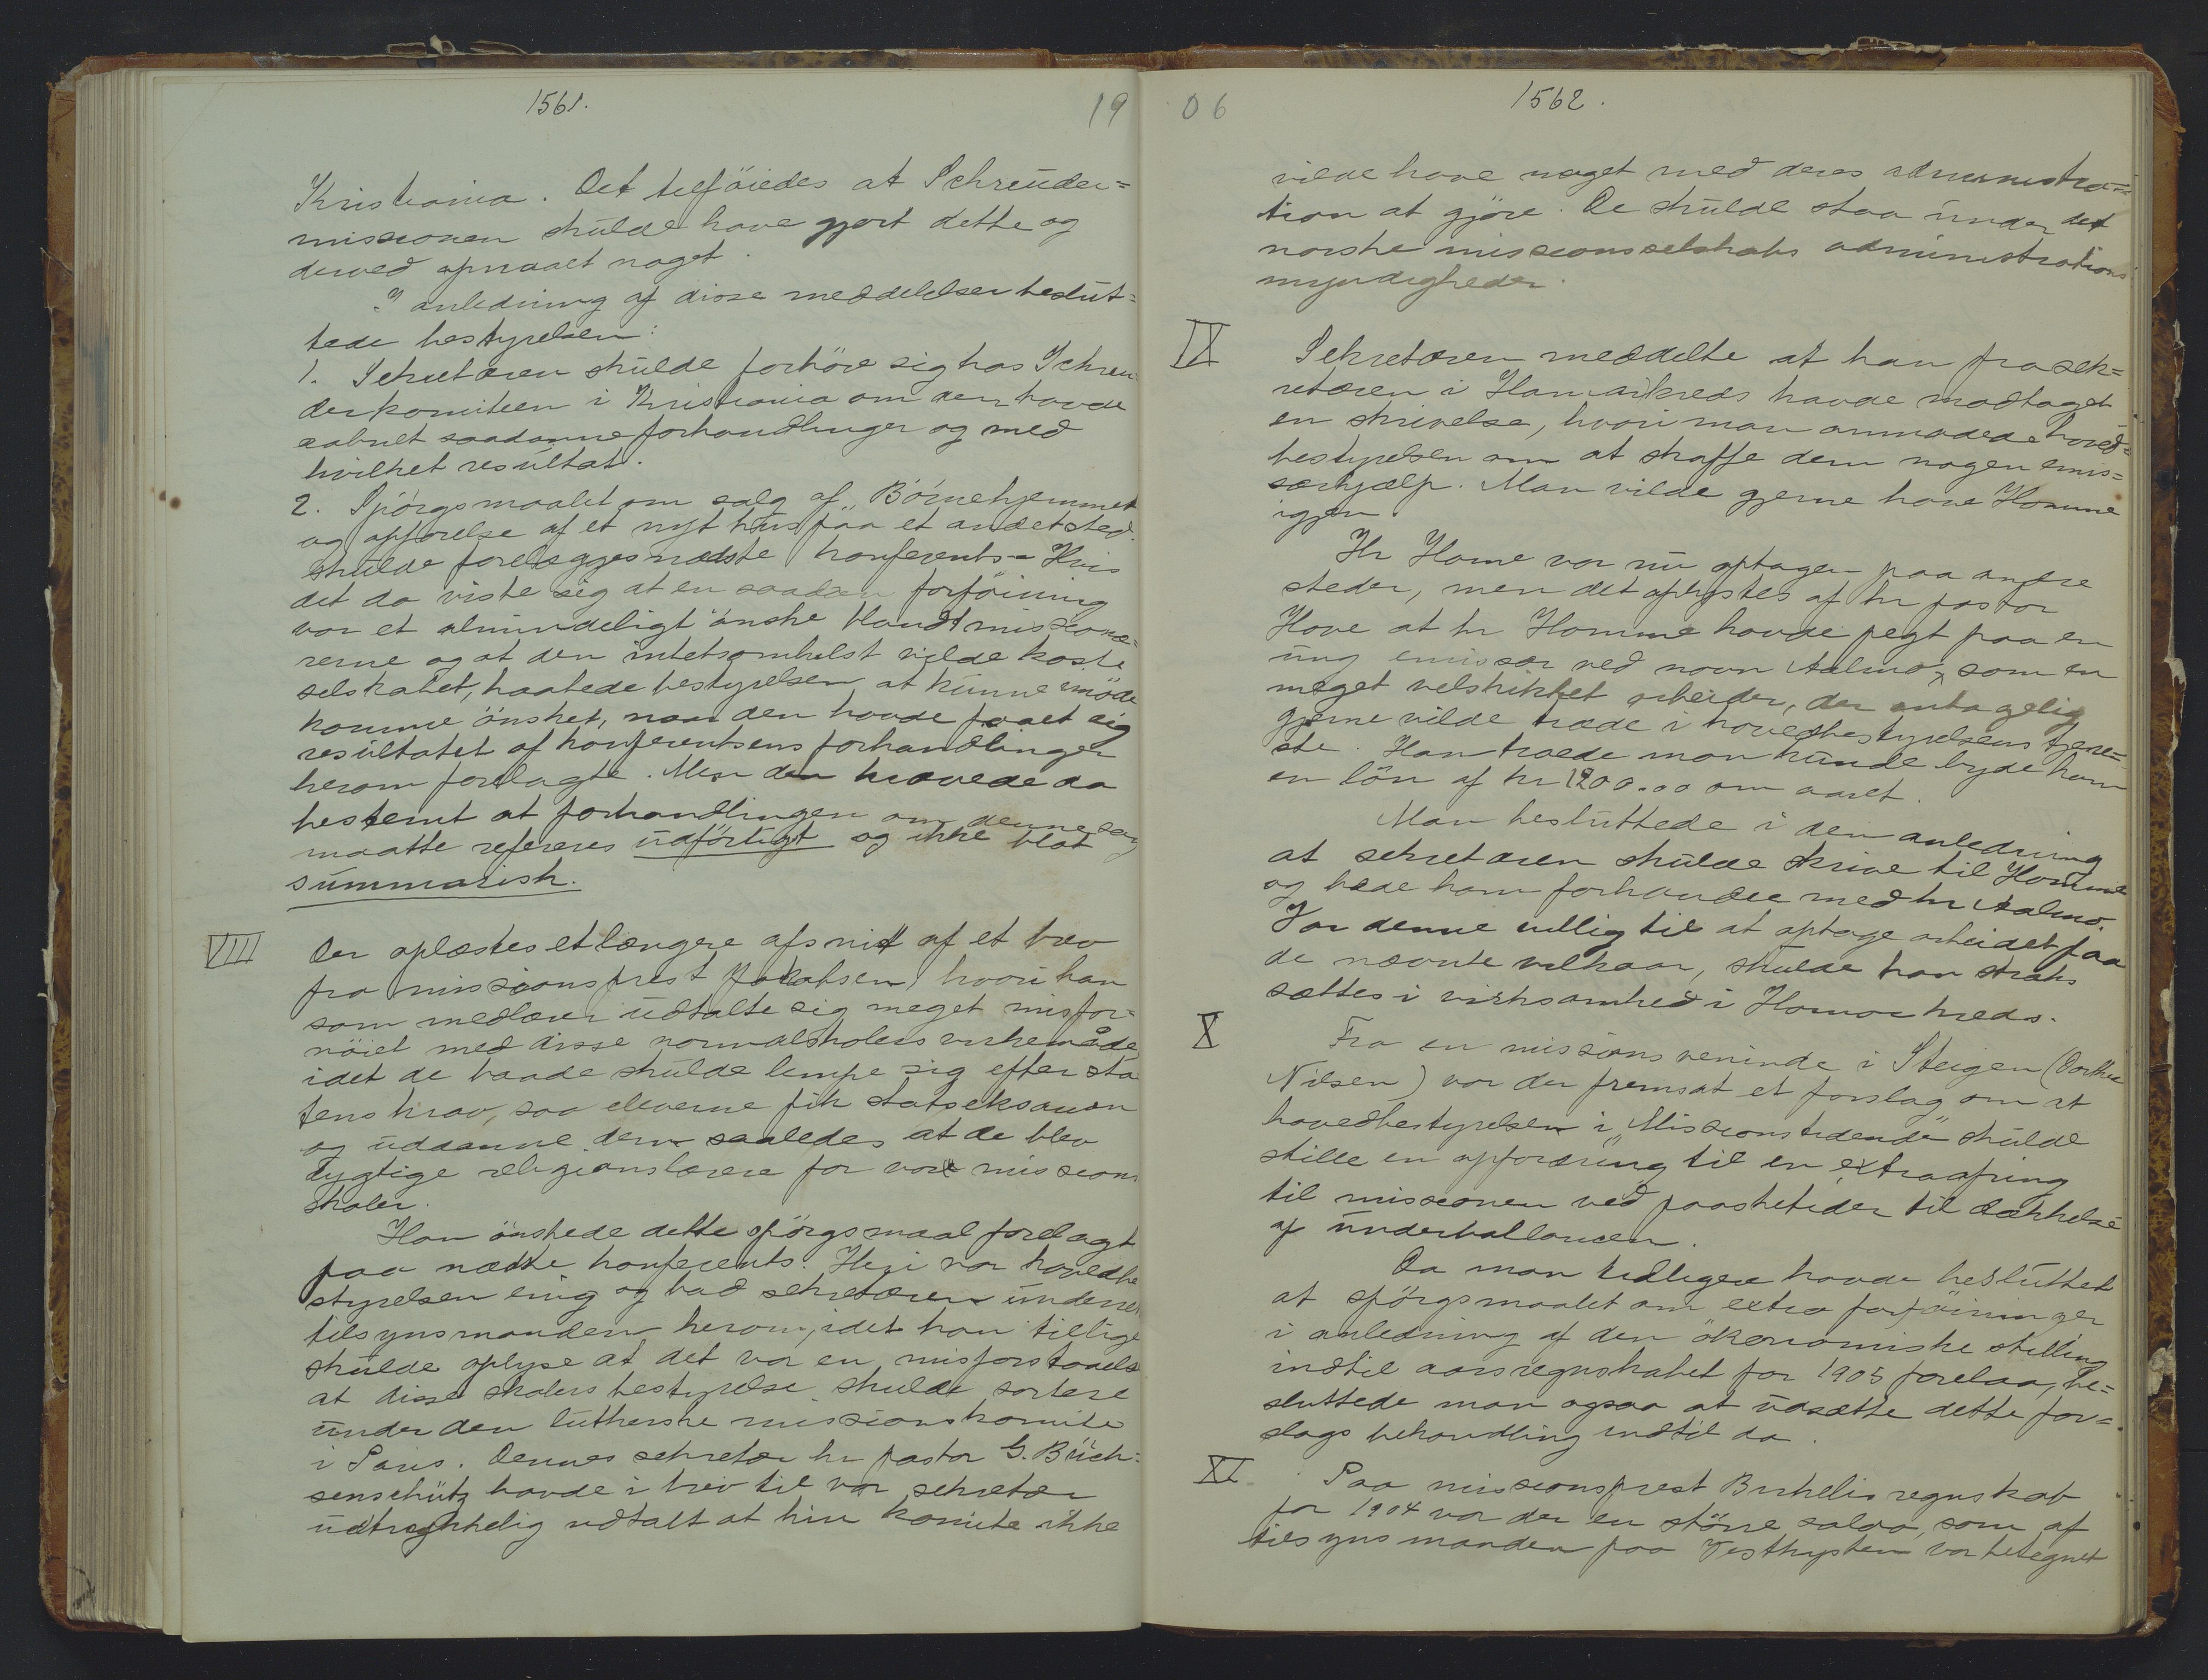 1561.
19
Kristiania. Det tilföiedes at Schreuder=
missionen skulde have gjort dette og
derved opnaaet noget.
I anledning af disse meddelelser beslut=
tede bestyrelsen:
1. Sekretæren skulde forhöre sig hos Schreu-
derkomiteen i Kristiania om den havde
aabnet saadanne forhandlinger og med
hvilket resultat.
2. Spörgsmaalet om salg af "Börnehjemmet"
og opförelse af et nyt hus paa et andet sted.
skulde forelægges næste konferents. Hvis
det da viste sig at en saadan forföining
var et almindeligt önske blandt missionæ=
rerne og at den intetsomhelst vilde koste
selskabet, haabede bestyrelsen at kunne imöde
komme önsket, naar den havde faaet sig
resultatet af konferentsens forhandlinger
herom forelagte. Men den krævede da
bestemt at forhandlingen om denne sag
maatte refereres udförligt og ikke blot
summarisk.
VIII Der oplæstes et længere afsnit af et brev
fra missionsprest Jakobsen, hvori han
som medlærer udtalte sig meget misfor=
nöiet med disse normalskolers virkemåde,
idet de baade skulde lempe sig efter sta
tens krav, saa eleverne fik statseksamen
og uddanne dem saaledes at de blev
dygtige religionslærere for vore missions
skoler.
Han önskede dette spörgsmaal forelagt
paa næste konferents. Heri var hovedbe
styrelsen enig og bad sekretæren underret
tilsynsmanden herom, idet han tillige
skulde oplyse at det var en misforstaaelse
at disse skolers bestyrelse skulde sortere
under den lutherske missionskomite
i Paris. Dennes sekretær hr pastor G. Büch=
senschütz havde i brev til vor sekretær
udtrykkelig udtalt at hin komite ikke
06
1562.
vilde have noget med deres administra=
tion at gjöre. De skulde staa under det
norske missionsselskabs administrations
myndigheder.
IX Sekretæren meddelte at han fra sek=
retæren i Hamar kreds havde modtaget
en skrivelse, hvori man anmodede hoved=
bestyrelsen om at skaffe dem nogen emis=
særhjælp. Man vilde gjerne have Homme
igjen.
Hr Home var nu optagen paa andre
steder, men det oplystes af hr pastor
Hove at hr Homme havde pegt paa en
ung emissær ved navn Aalmo, som en
meget velskikket arbeider, der antagelig
gjerne vilde træde i hovedbestyrelsens tjene=
ste. Han troede man kunde byde ham
en lön af kr 1200.00 om aaret.
Man besluttede i den anledning
at sekretæren skulde skrive til Homme
og bede ham forhandle med hr Aalmo.
Var denne villig til at optage arbeidet paa
de nævnte vilkaar, skulde han straks
sættes i virksomhed i Hamar kreds.
X Fra en missionsveninde i Steigen (Dorthea
Nilsen) var der fremsat et forslag om at
hovedbestyrelsen i "Missionstidende" skulde
stille en opfordring til en extraofring
til missionen ved paasketider til dækkelse
af underballancen.
Da man tidligere havde besluttet
at spörgsmaalet om extra forföininger
i anledning af den ökonomiske stilling
indtil aarsregnskabet for 1905 forelaa, be=
sluttede man ogsaa at udsætte dette for=
slags behandling indtil da.
XI Paa missionsprest Birkelis regnskab
for 1904 var der en större saldo, som af
tilsynsmanden paa Vestkysten var betegnet